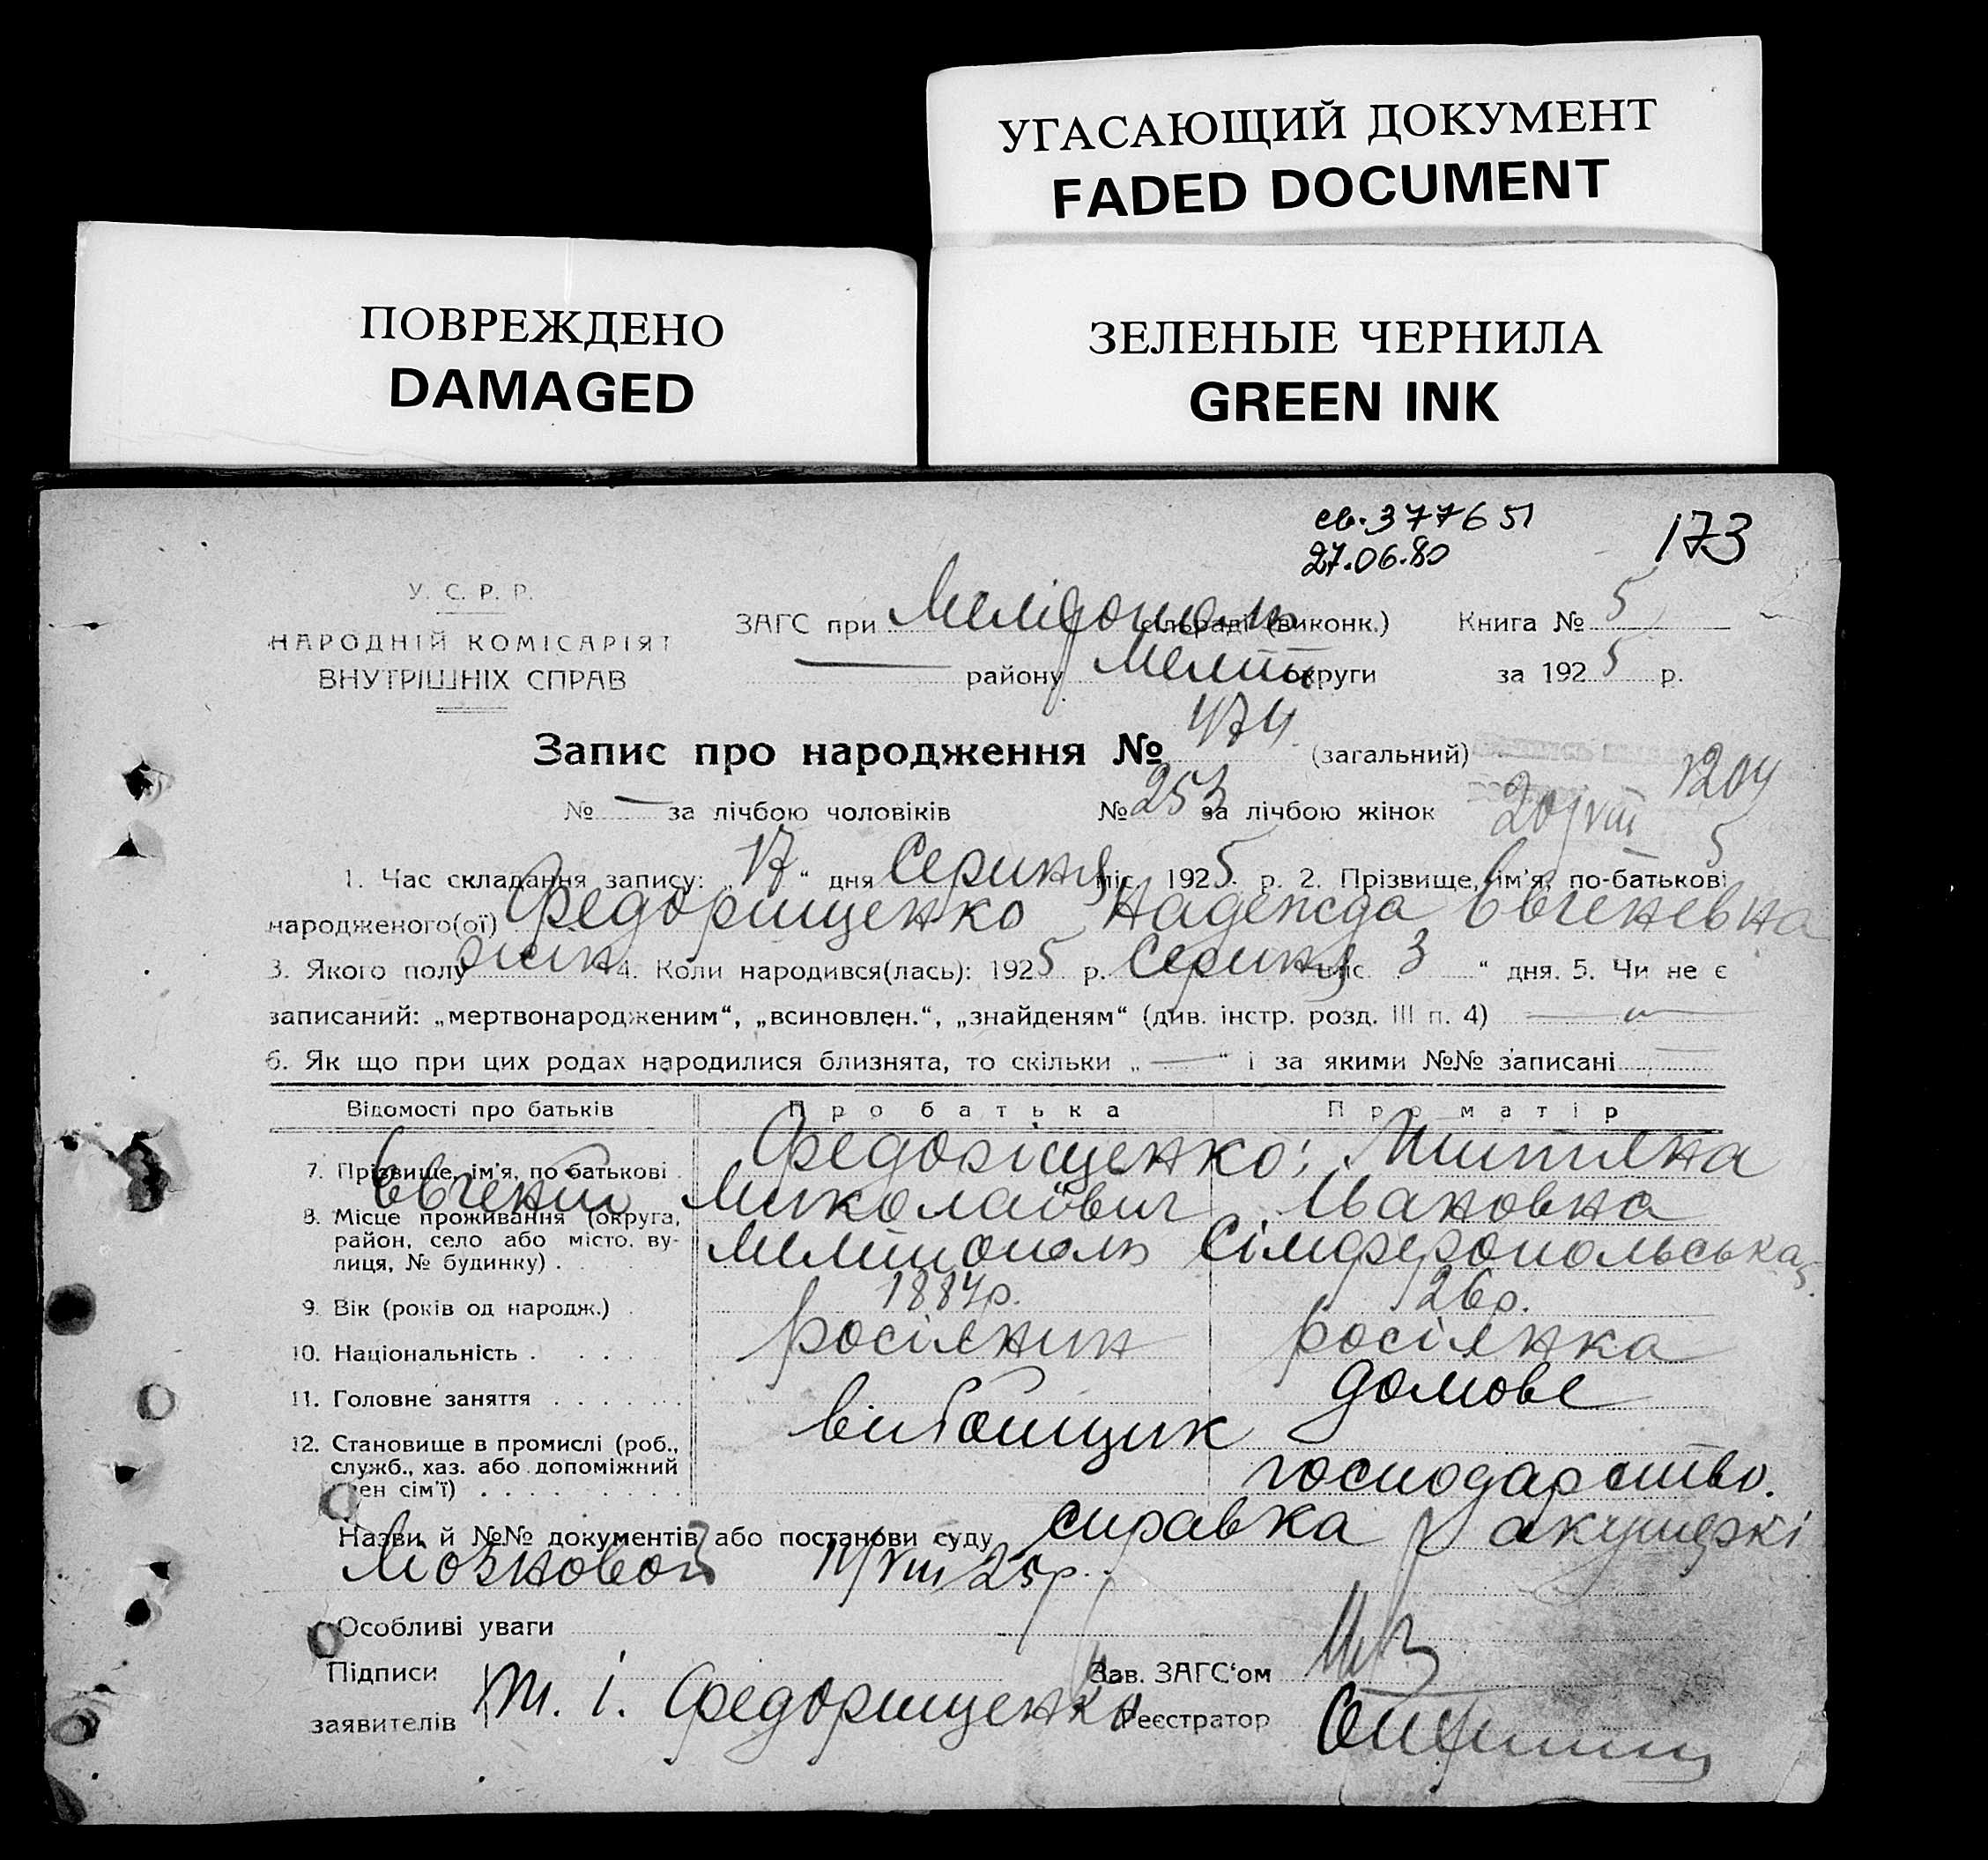 УГАСАЮЩИЙ ДОКУМЕНТ
FADED DOCUMENT
ПОВРЕЖДЕНО
DAMAGED
ЗЕЛЕНЫЕ ЧЕРНИЛА
GREEN INK
св. 377651
27.06.80
173
У. С. Р. Р.
НАРОДНІЙ КОМІСАРІЯТ
ВНУТРІШНІХ СПРАВ
ЗАГС при Мелітополь сільраді (виконк.) Книга № 5
— району Меліт. округи за 1925 р.
Запис про народження № 474 (загальний)
1204
№ — за лічбою чоловіків № 253 за лічбою жінок 20/VIII 5
1. Час складання запису: „17“ дня Серпня міс. 1925 р. 2. Прізвище, ім'я, по-батькові
народженого(ої) Федорищенко Надежда Євгеневна
3. Якого полу жін 4. Коли народився(лась): 1925 р. Серпня міс. 3 “ дня. 5. Чи не є
записаний: „мертвонародженим“, „всиновлен.“, „знайденям“ (див. інстр. розд. III п. 4) —
6. Як що при цих родах народилися близнята, то скільки „ — “ і за якими №№ записані —
Відомості про батьків Про батька Про матір
7. Прізвище, ім'я, по батькові Федоріщенко
Євгений Миколаївич Івановна
8. Місце проживання (округа,
район, село або місто, ву-
лиця, № будинку) . Мелітополь Сімферопольська
9. Вік (років од народж.) . 1884р. 26р.
10. Національність . . . . росіянин росіянка
11. Головне заняття . . . . . . вибойщик домове
господарство.
12. Становище в промислі (роб.,
служб., хаз. або допоміжний
член сім'ї) . . . . . . . . .
Назви й №№ документів або постанови суду справка акушеркі
Мозновой /VIII 25р.
Особливі уваги
Підписи Зав. ЗАГС'ом
заявителів Т. І. Федорищенко Реєстратор